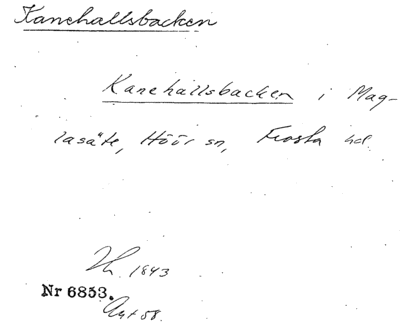 Kanehallsbacken
Kanehallsbacken i Mag-
lasäte, Höör sn, Frosta hd.
1843
Nr 6853.
58.